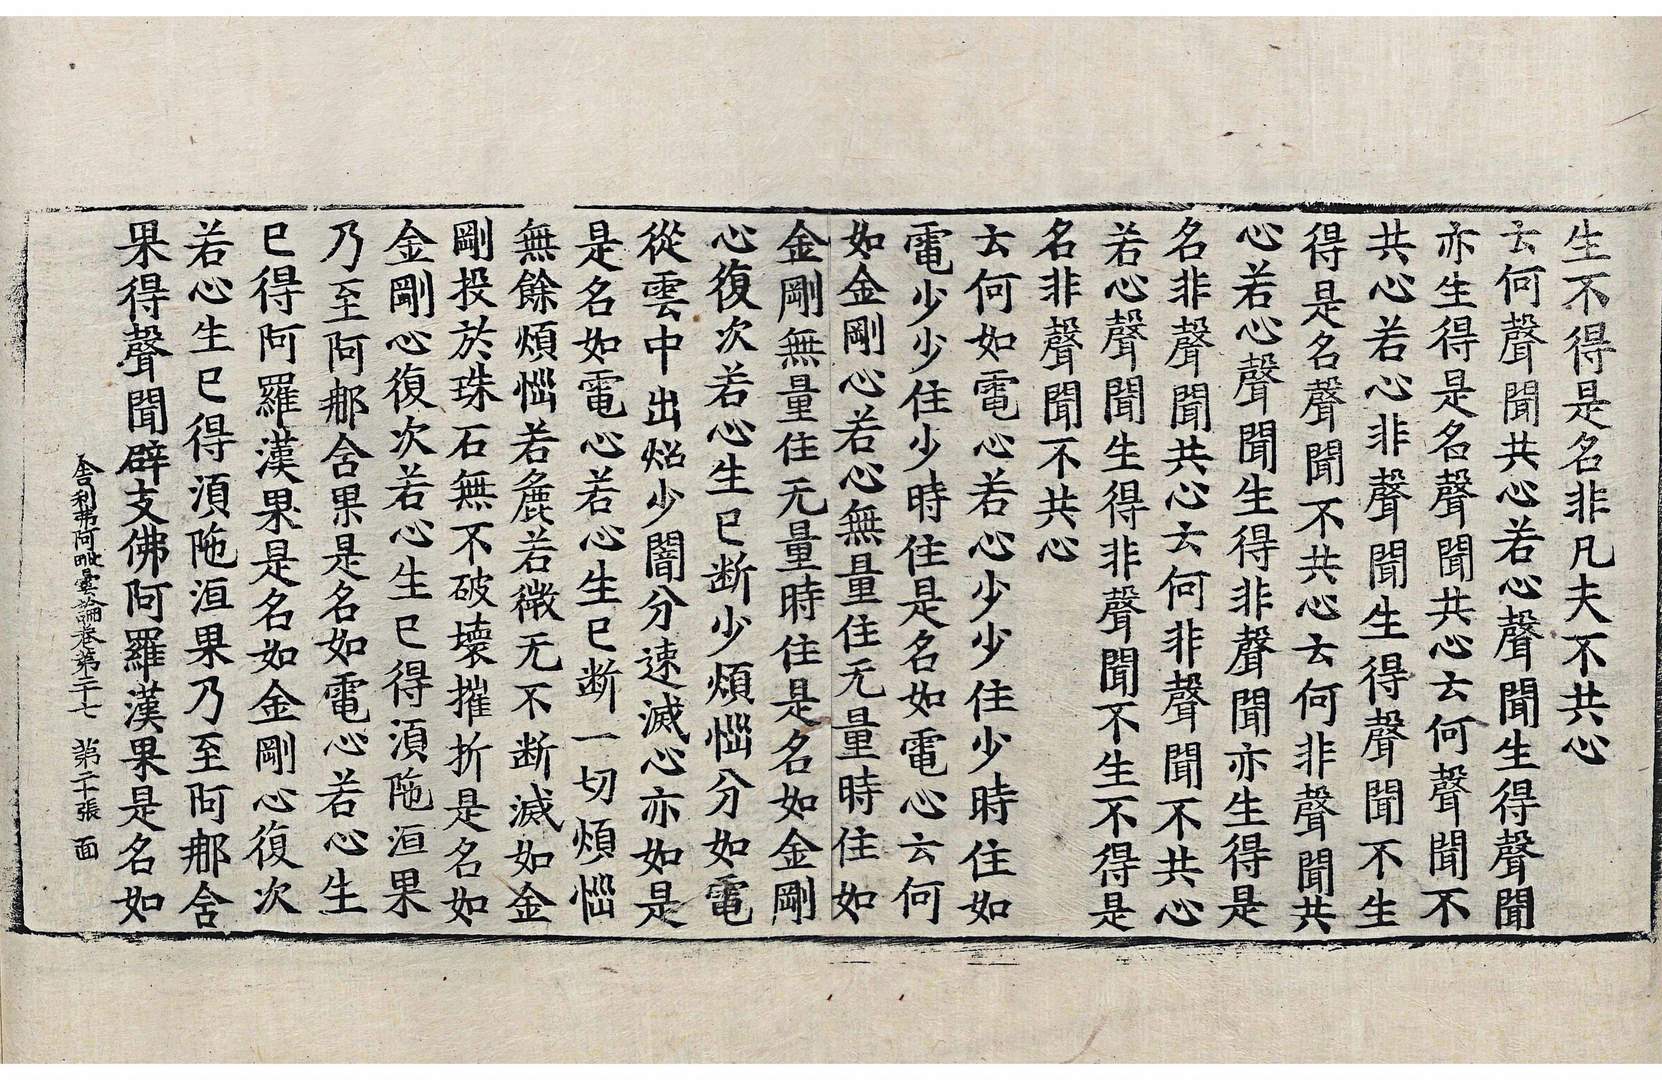 生不得是名非凡夫不共心
云何聲聞共心若心聲聞生得聲聞
亦生得是名聲聞共心云何聲聞不
共心若心非聲聞生得聲聞不生
得是名聲聞不共心云何非聲聞共
心若心聲聞生得非聲聞亦生得是
名非聲聞共心云何非聲聞不共心
若心聲聞生得非聲聞不生不得是
名非聲聞不共心
云何如電心若心少少住少時住如
電少少住少時住是名如電心云何
如金剛心若心無量住无量時住如
金剛無量住无量時住是名如金剛
心復次若心生已断少煩惱分如電
從雲中出㷔少闇分速滅心亦如是
是名如電心若心生已断一切煩惱
無餘煩惱若麁若微无不断滅如金
剛投於珠石無不破壞摧折是名如
金剛心復次若心生已得湏陁洹果
乃至阿那含果是名如電心若心生
已得阿羅漢果是名如金剛心復次
若心生已得湏陁洹果乃至阿那含
果得聲聞辟支佛阿羅漢果是名如
舍利弗阿毗曇論卷第二十七 第二十張 面